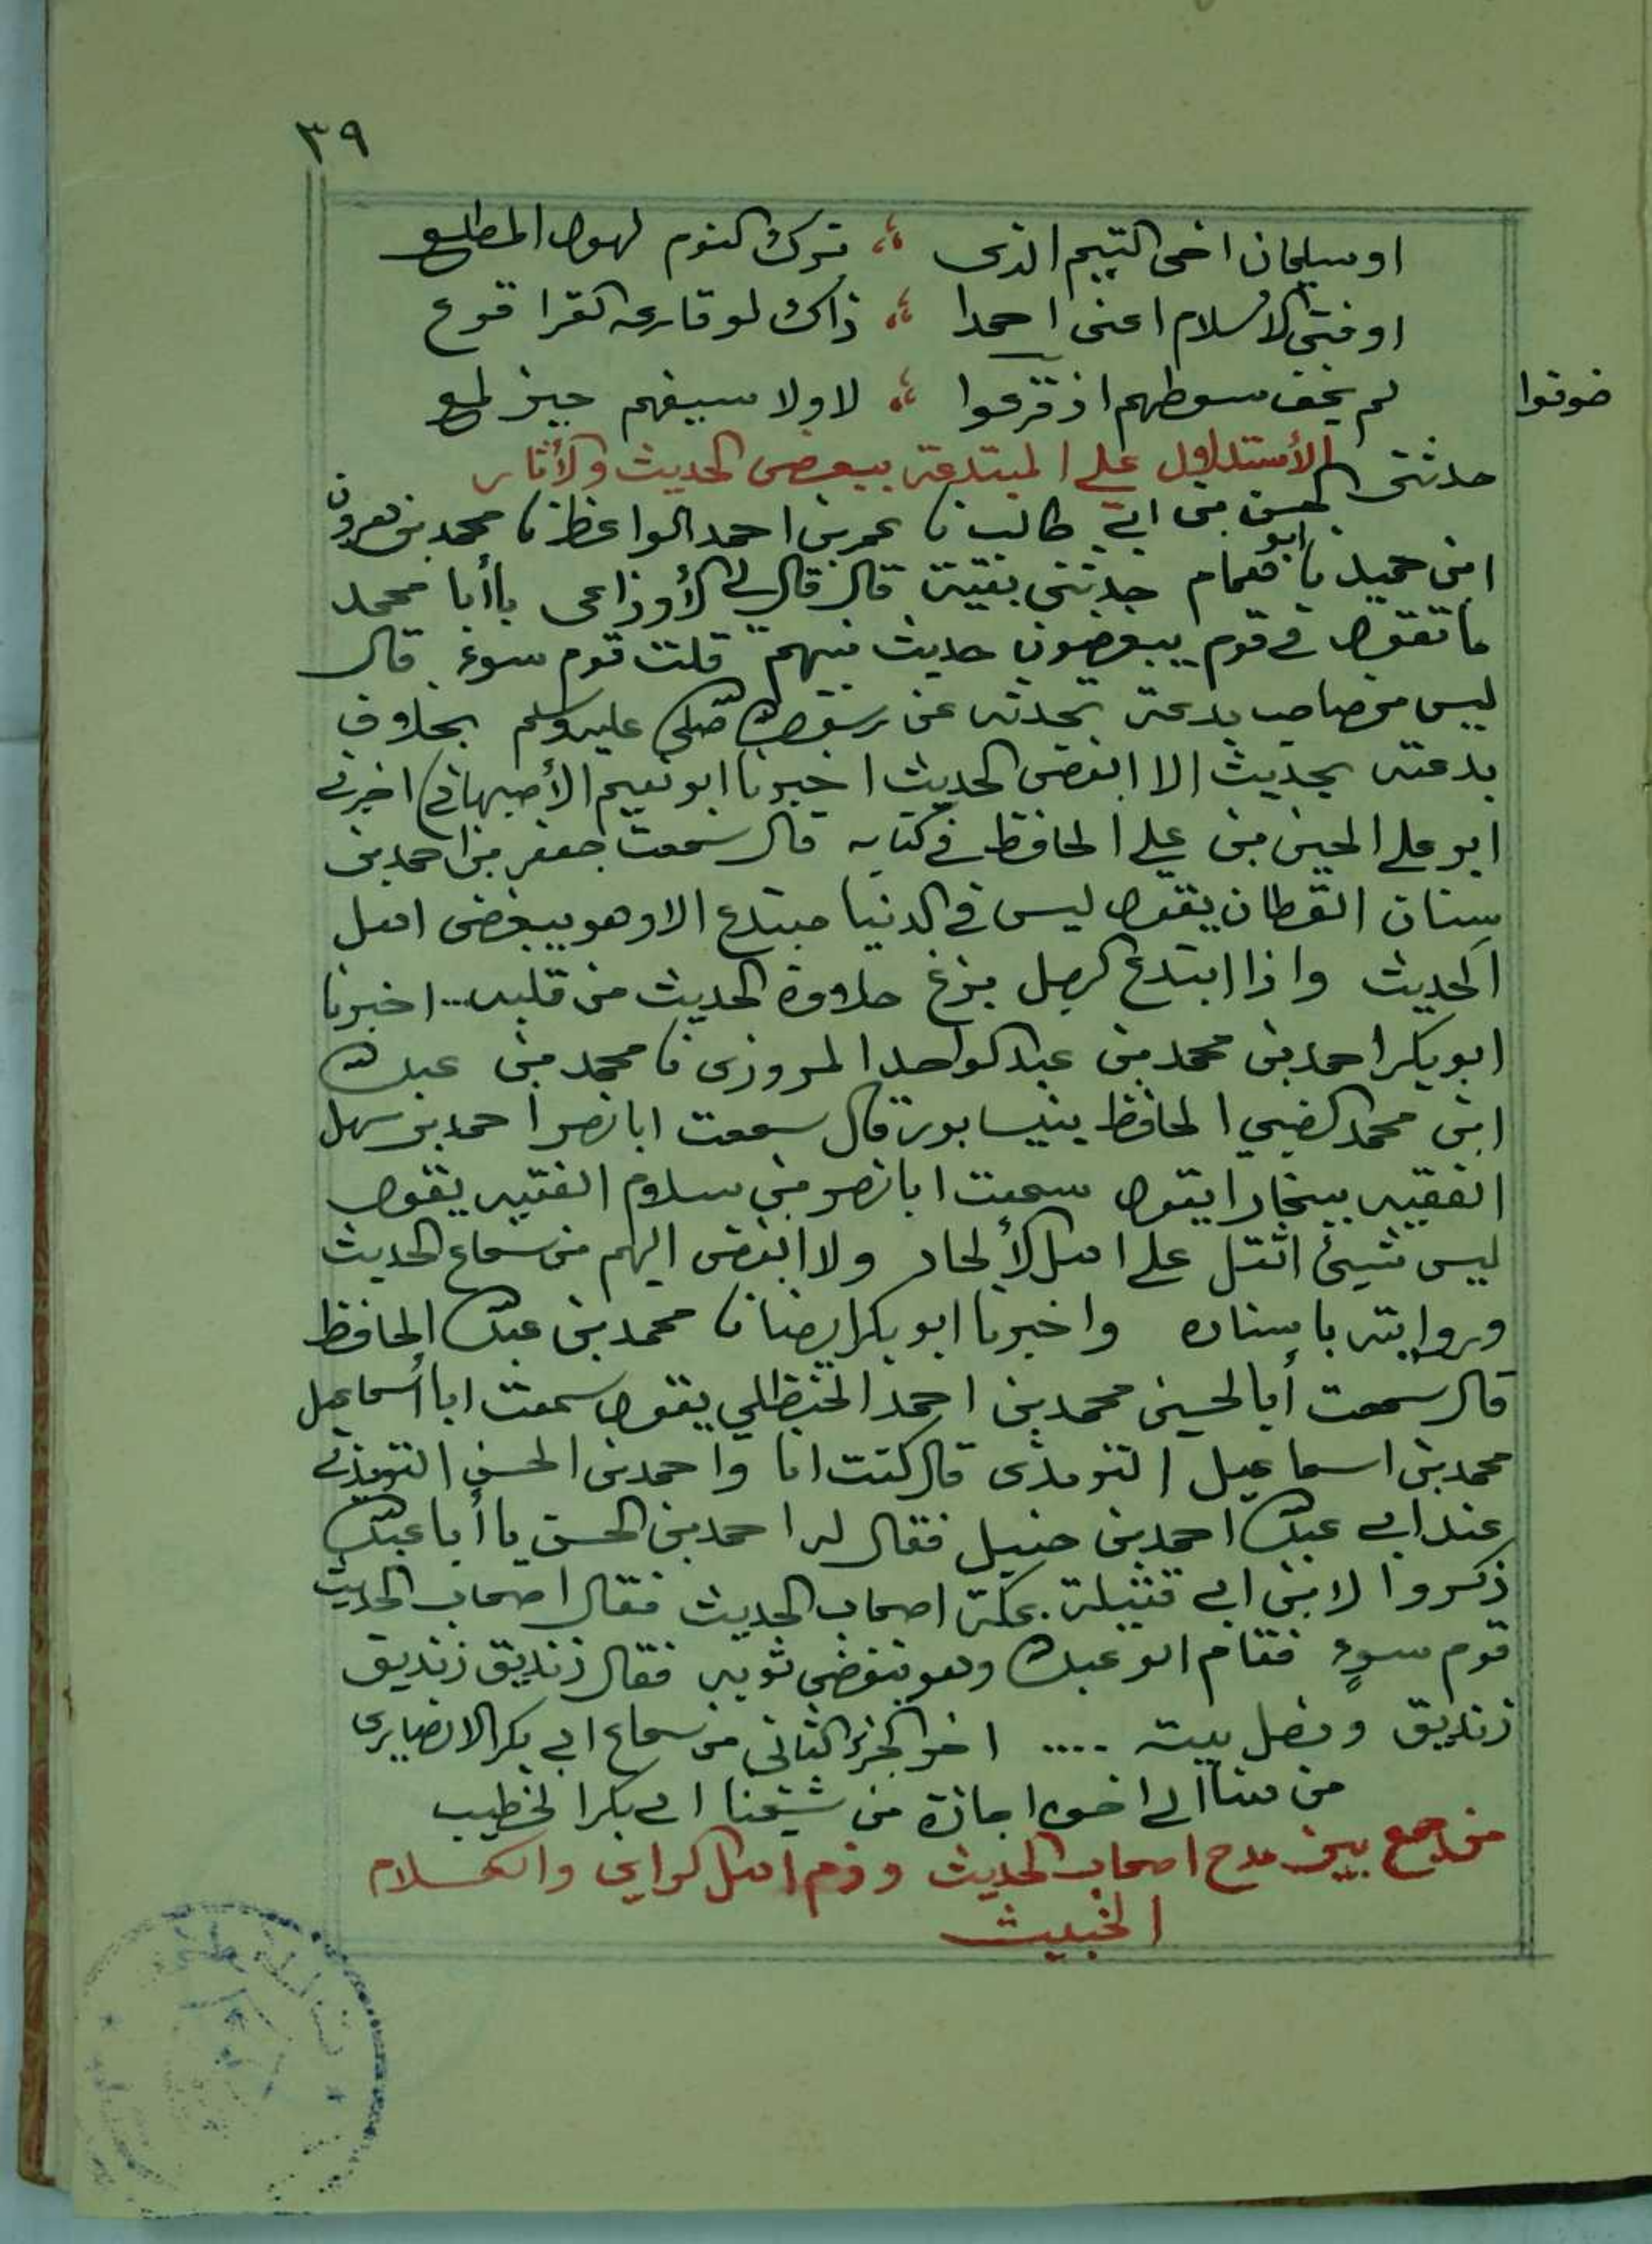 ٣٩
او سليمان اخى التيم الذى ؛ ترك النوم لهول المطلع
او فتى الأسلام اعنى احمدا ؛ ذاك لو قارعه القرا قرع
لم يخف سوطهم اذ قزعوا ؛ لا ولا سيفهم حين لمع
خوفوا
الأستدلال على المبتدعة ببغض الحديث والأثار
حدثنى الحسن بن ابى طالب نا عمر بن احمد الواعظ نا محمد بن هرون
ابن حميد نا ابو همام حدثنى بقية قال قال لى الأوزاعى ياأبا محمد
ما تقول فى قوم يبغضون حديث نبيهم قلت قوم سوء قال
ليس من صاحب بدعة تحدثه عن رسول الله صلى عليه وسلم بخلاف
بدعته بحديث الا ابغض الحديث اخبرنا ابو نعيم الأصبهانى اخبرنى
ابو على الحين بن على الحافظ فى كتابه قال سمعت جعفر بن احمد بن
سنان القطان يقول ليس فى الدنيا مبتدع الا وهو يبغض اهل
الحديث واذا ابتدع الرجل نزع حلاوة الحديث من قلبه... اخبرنا
ابو بكر احمد بن محمد بن عبد الواحد المروزى نا محمد بن عبد الله
ابن محمد الضبي الحافظ بنيسابور قال سمعت ابا نصر احمد بن سهل
الفقيه ببخارا يقول سمعت ابا نصر بن سلام الفقيه يقول
ليس شيئ اثقل على اهل الألحاد ولا ابغض اليهم من سماع الحديث
وروايته باسناده واخبرنا ابو بكر ايضا نا محمد بن عبد الله الحافظ
قال سمعت أبا الحسين محمد بن احمد الحنظلي يقول سمعت ابا أسماعيل
محمد بن اسماعيل الترمذى قال كنت انا واحمد بن الحسن الترمذى
عند ابى عبد الله احمد بن حنبل فقال له احمد بن الحسن يا أبا عبد الله
ذكروا لابن ابى قتيلة بمكة اصحاب الحديث فقال اصحاب الحديث
قوم سوءٍ فقام ابو عبد الله وهو ينفض ثوبه فقال زنديق زنديق
زنديق ودخل بيته .... اخر الجزء الثانى من سماع ابى بكر الانصارى
من هنا الى اخره اجازة من شيخنا ابى بكر الخطيب
من جمع بين مدح اصحاب الحديث وذم اهل الراى والكلام
الخبيث